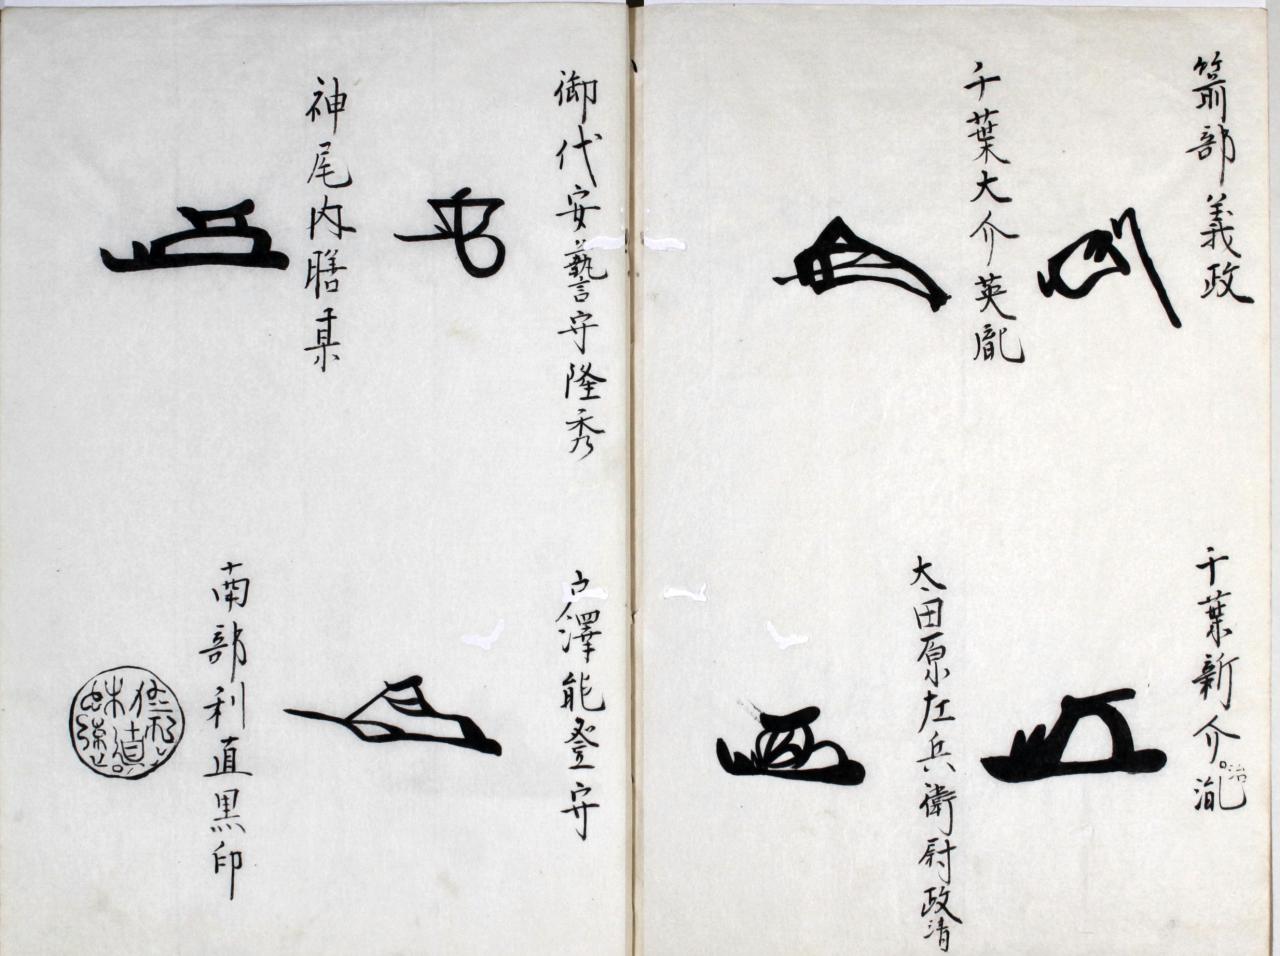 箭部義政
千葉大介英胤
千葉新介治胤
大田原左兵衛尉政清
御代安藝守隆秀
神尾内膳某
戸澤能登守
南部利直黒印